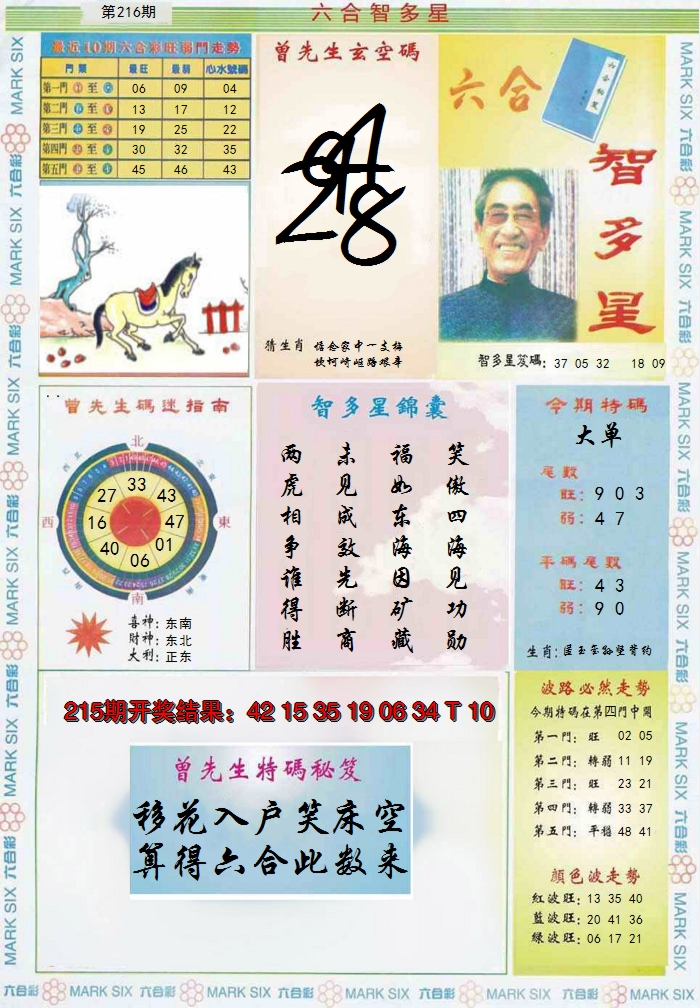 第216期
六合智多星
最近10期六合彩旺弱門走勢
門類 最旺 最弱 心水號碼
第一門 至 06 09 04
第二門 至 13 17 12
第三門 至 19 25 22
第四門 至 30 32 35
第五門 至 45 46 43
曾先生玄空碼
猜生肖
六合
智多星
智多星笈碼: 37 05 32 18 09
曾先生碼迷指南
北
西北
東北
33
27
43
西
16
47
東
40
01
06
南
喜神: 东南
财神: 东北
大利: 正东
智多星錦囊
笑傲四海见功勋
福如东海因矿藏
未见成效先断商
两虎相争谁得胜
今期特碼
大单
尾數
旺: 9 0 3
弱: 4 7
平碼尾數
旺: 4 3
弱: 9 0
生肖:
215期开奖结果：42 15 35 19 06 34 T 10
曾先生特碼秘笈
移花入户笑床空
算得六合此数来
波路必然走勢
今期特碼在第四門中開
第一門: 旺 02 05
第二門: 轉弱 11 19
第三門: 旺 23 21
第四門: 轉弱 33 37
第五門: 平穩 48 41
顏色波走勢
紅波旺: 13 35 40
藍波旺: 20 41 36
綠波旺: 06 17 21
MARK SIX 六合彩